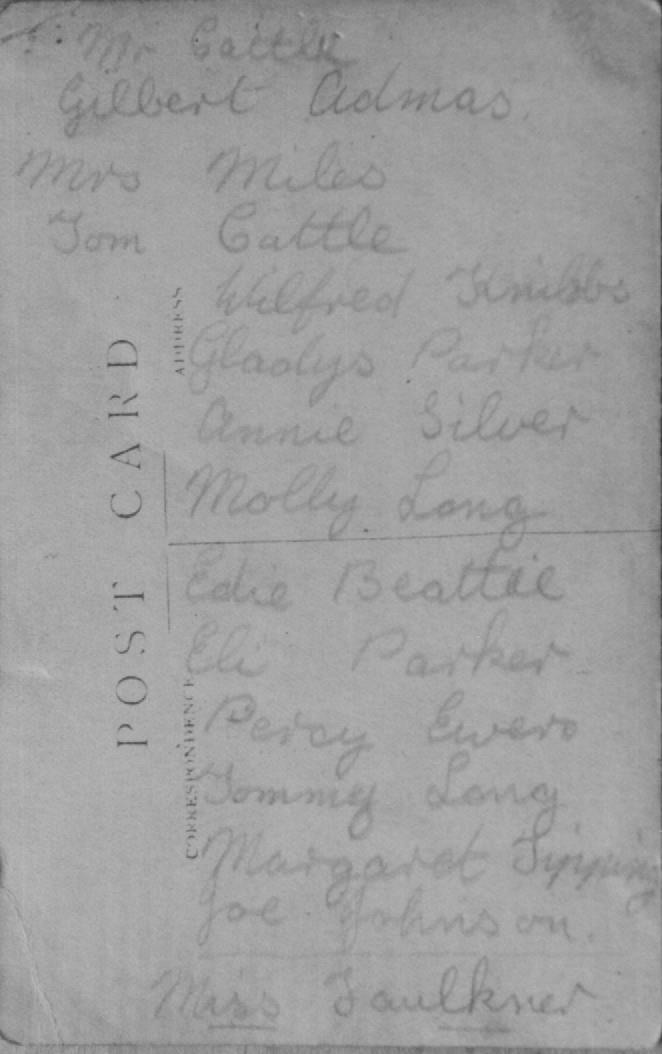 Mr Cattle
Gilbert Admas.
Mrs Miles
Tom Cattle
Wilfred Knibbs
Gladys Parker
Annie Silver
Molly Long
Edie Beattie
Eli Parker
Percy Ewers
Tommy Long
Margaret Tipping
Joe Johnson.
Miss Faulkner
POST CARD
ADDRESS
CORRESPONDENCE